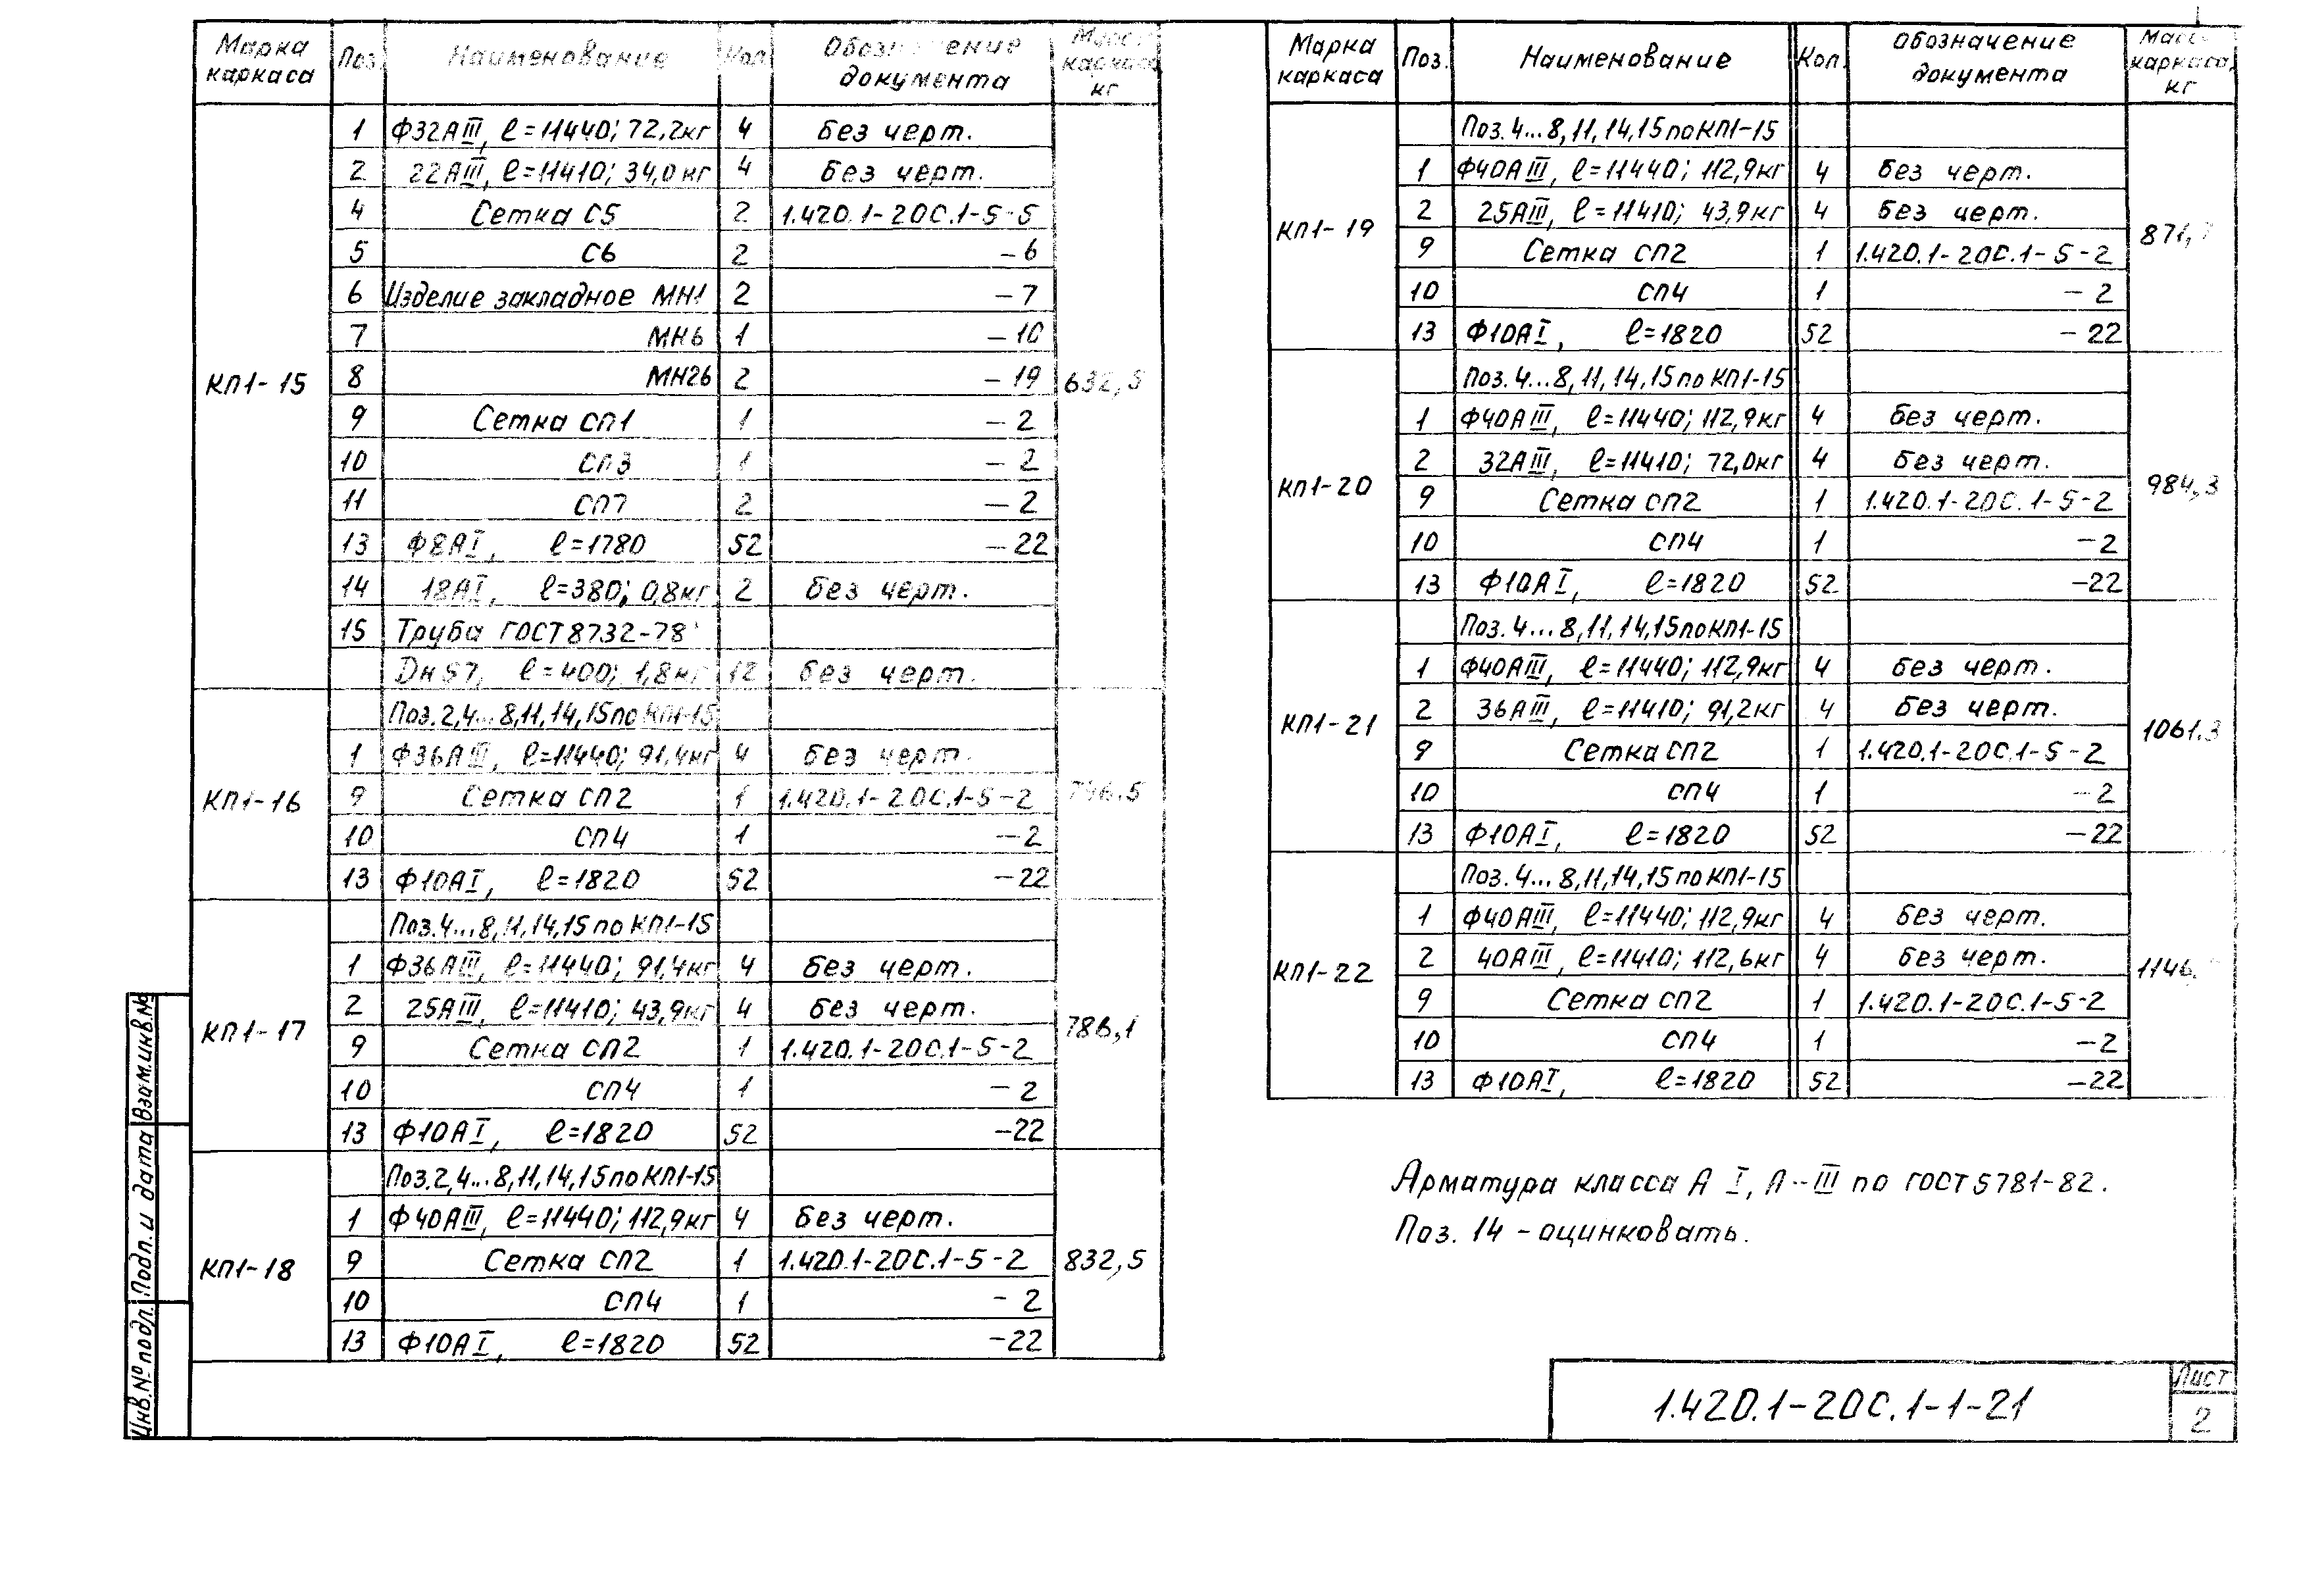 Марка каркаса Поз. Наименование Кол. Обозначение документа Масса каркаса, кг
КП1-15
1 Ф32АIII, ℓ=11440; 72,2кг 4 Без черт.
2 22АIII, ℓ=11410; 34,0кг 4 Без черт.
4 Сетка С5 2 1.420.1-20С.1-5-5
5 С6 2 -6
6 Изделие закладное МН1 2 -7
7 МН6 1 -10
8 МН26 2 -19 632,5
9 Сетка СП1 1 -2
10 СП3 1 -2
11 СП7 2 -2
13 Ф8АI, ℓ=1780 52 -22
14 18АI, ℓ=380; 0,8кг 2 Без черт.
15 Труба ГОСТ 8732-78
Дн 57, ℓ=400; 1,8кг 12 Без черт.
КП1-16
Поз. 2,4...8,11,14,15 по КП1-15
1 Ф36АIII, ℓ=11440; 91,4кг 4 Без черт.
9 Сетка СП2 1 1.420.1-20С.1-5-2
10 СП4 1 -2
13 Ф10АI, ℓ=1820 52 -22
КП1-17
Поз. 4...8,11,14,15 по КП1-15
1 Ф36АIII, ℓ=11440; 91,4кг 4 Без черт.
2 25АIII, ℓ=11410; 43,9кг 4 Без черт.
9 Сетка СП2 1 1.420.1-20С.1-5-2 786,1
10 СП4 1 -2
13 Ф10АI, ℓ=1820 52 -22
КП1-18
Поз. 2,4...8,11,14,15 по КП1-15
1 Ф40АIII, ℓ=11440; 112,9кг 4 Без черт.
9 Сетка СП2 1 1.420.1-20С.1-5-2 832,5
10 СП4 1 -2
13 Ф10АI, ℓ=1820 52 -22
Марка каркаса Поз. Наименование Кол. Обозначение документа Масса каркаса, кг
КП1-19
Поз. 4...8,11,14,15 по КП1-15
1 Ф40АIII, ℓ=11440; 112,9кг 4 Без черт.
2 25АIII, ℓ=11410; 43,9кг 4 Без черт.
9 Сетка СП2 1 1.420.1-20С.1-5-2
10 СП4 1 -2
13 Ф10АI, ℓ=1820 52 -22
КП1-20
Поз. 4...8,11,14,15 по КП1-15
1 Ф40АIII, ℓ=11440; 112,9кг 4 Без черт.
2 32АIII, ℓ=11410; 72,0кг 4 Без черт.
9 Сетка СП2 1 1.420.1-20С.1-5-2 984,3
10 СП4 1 -2
13 Ф10АI, ℓ=1820 52 -22
КП1-21
Поз. 4...8,11,14,15 по КП1-15
1 Ф40АIII, ℓ=11440; 112,9кг 4 Без черт.
2 36АIII, ℓ=11410; 91,2кг 4 Без черт.
9 Сетка СП2 1 1.420.1-20С.1-5-2 1061.3
10 СП4 1 -2
13 Ф10АI, ℓ=1820 52 -22
КП1-22
Поз. 4...8,11,14,15 по КП1-15
1 Ф40АIII, ℓ=11440; 112,9кг 4 Без черт.
2 40АIII, ℓ=11410; 112,6кг 4 Без черт.
9 Сетка СП2 1 1.420.1-20С.1-5-2
10 СП4 1 -2
13 Ф10АI, ℓ=1820 52 -22
Арматура класса А I, А-III по ГОСТ 5781-82.
Поз. 14 - оцинковать.
Инв.№ подл. Подп. и дата Взам.инв.№
1.420.1-20С.1-1-21
Лист
2